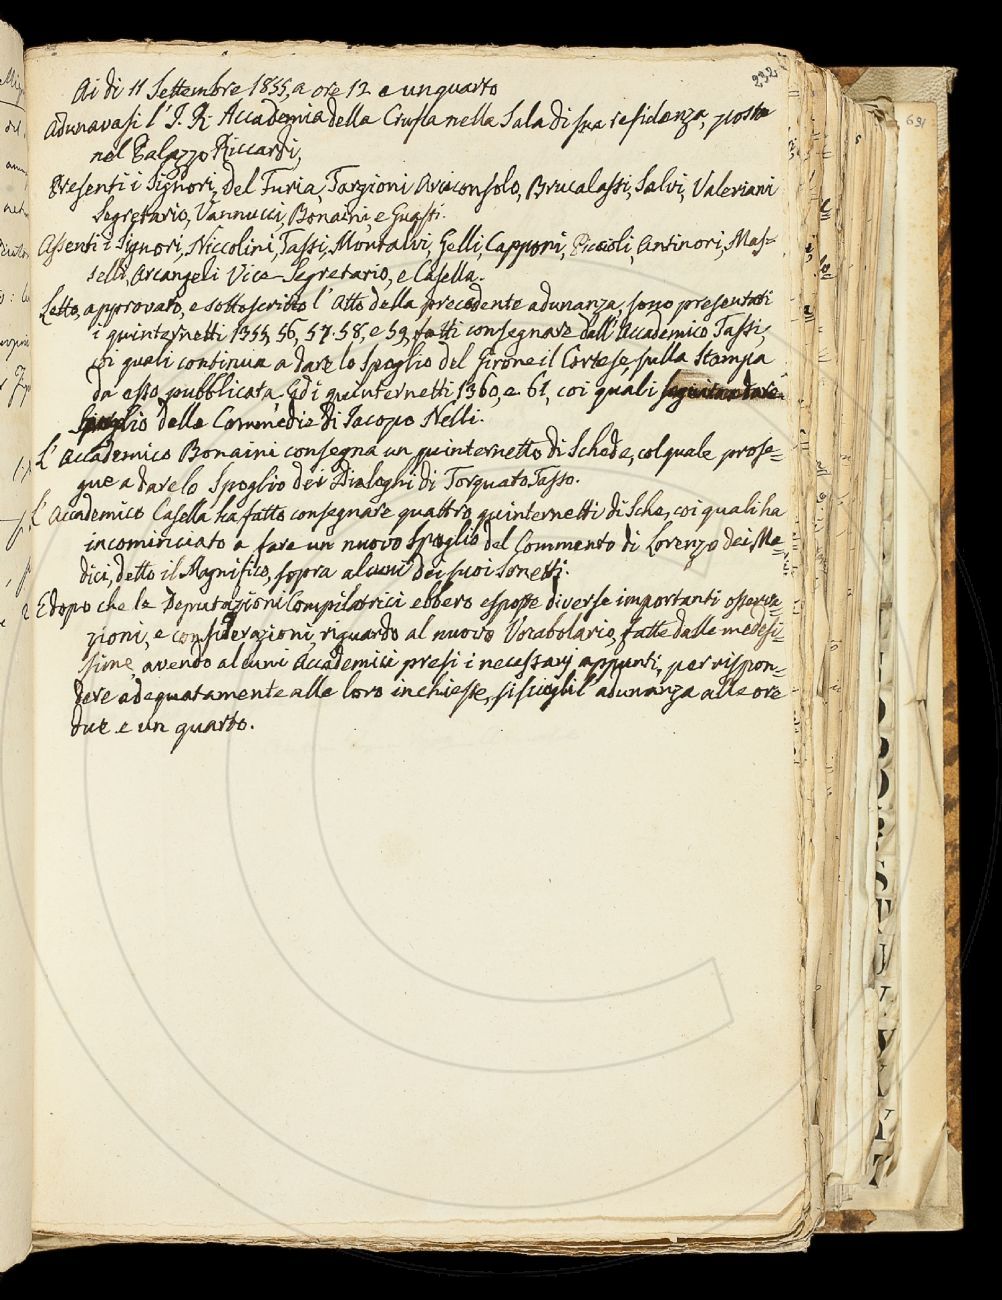 232
Ai dì 11 Settembre 1855, a ore 12 e un quarto
Adunavasi l'I. R. Accademia della Crusca nella Sala di sua residenza, posta
nel Palazzo Riccardi,
Presenti i Signori, Del Furia, Targioni Arciconsolo, Brucalassi, Salvi, Valeriani
Segretario, Vannucci, Bonaini, e Guasti.
Assenti i Signori, Niccolini, Tassi, Montalvi, Gelli, Capponi, Piccioli, Antinori, Mas=
selli, Arcangeli Vice-Segretario, e Casella.
Letto, approvato, e sottoscritto l'Atto della precedente adunanza, sono presentati
i quinternetti 1355, 56, 57. 58, e 59, fatti consegnare dall'Accademico Tassi,
coi quali continua a dare lo Spoglio del Girone il Cortese, sulla Stampa
da esso pubblicata. Ed i quinternetti 1360, e 61, coi quali seguita a dare
Spoglio delle Commedie di Iacopo Nelli.
L'Accademico Bonaini consegna un quinternetto di Schede, col quale prose=
gue a dare lo Spoglio dei Dialoghi di Torquato Tasso.
L'Accademico Casella ha fatto consegnare quattro quinternetti di Sche, coi quali ha
incominciato a fare un nuovo Spoglio del Commento di Lorenzo dei Me=
dici, detto il Magnifico, sopra alcuni dei suoi Sonetti.
E dopo che le Deputazioni Compilatrici ebbero esposte diverse importanti osserva=
zioni, e considerazioni, riguardo al nuovo Vocabolario, fatte dalle medesi=
sime, avendo alcuni Accademici presi i necessarj appunti, per rispon=
dere adeguatamente alle loro inchieste, si sciogli l'adunanza alle ore
due e un quarto.
691